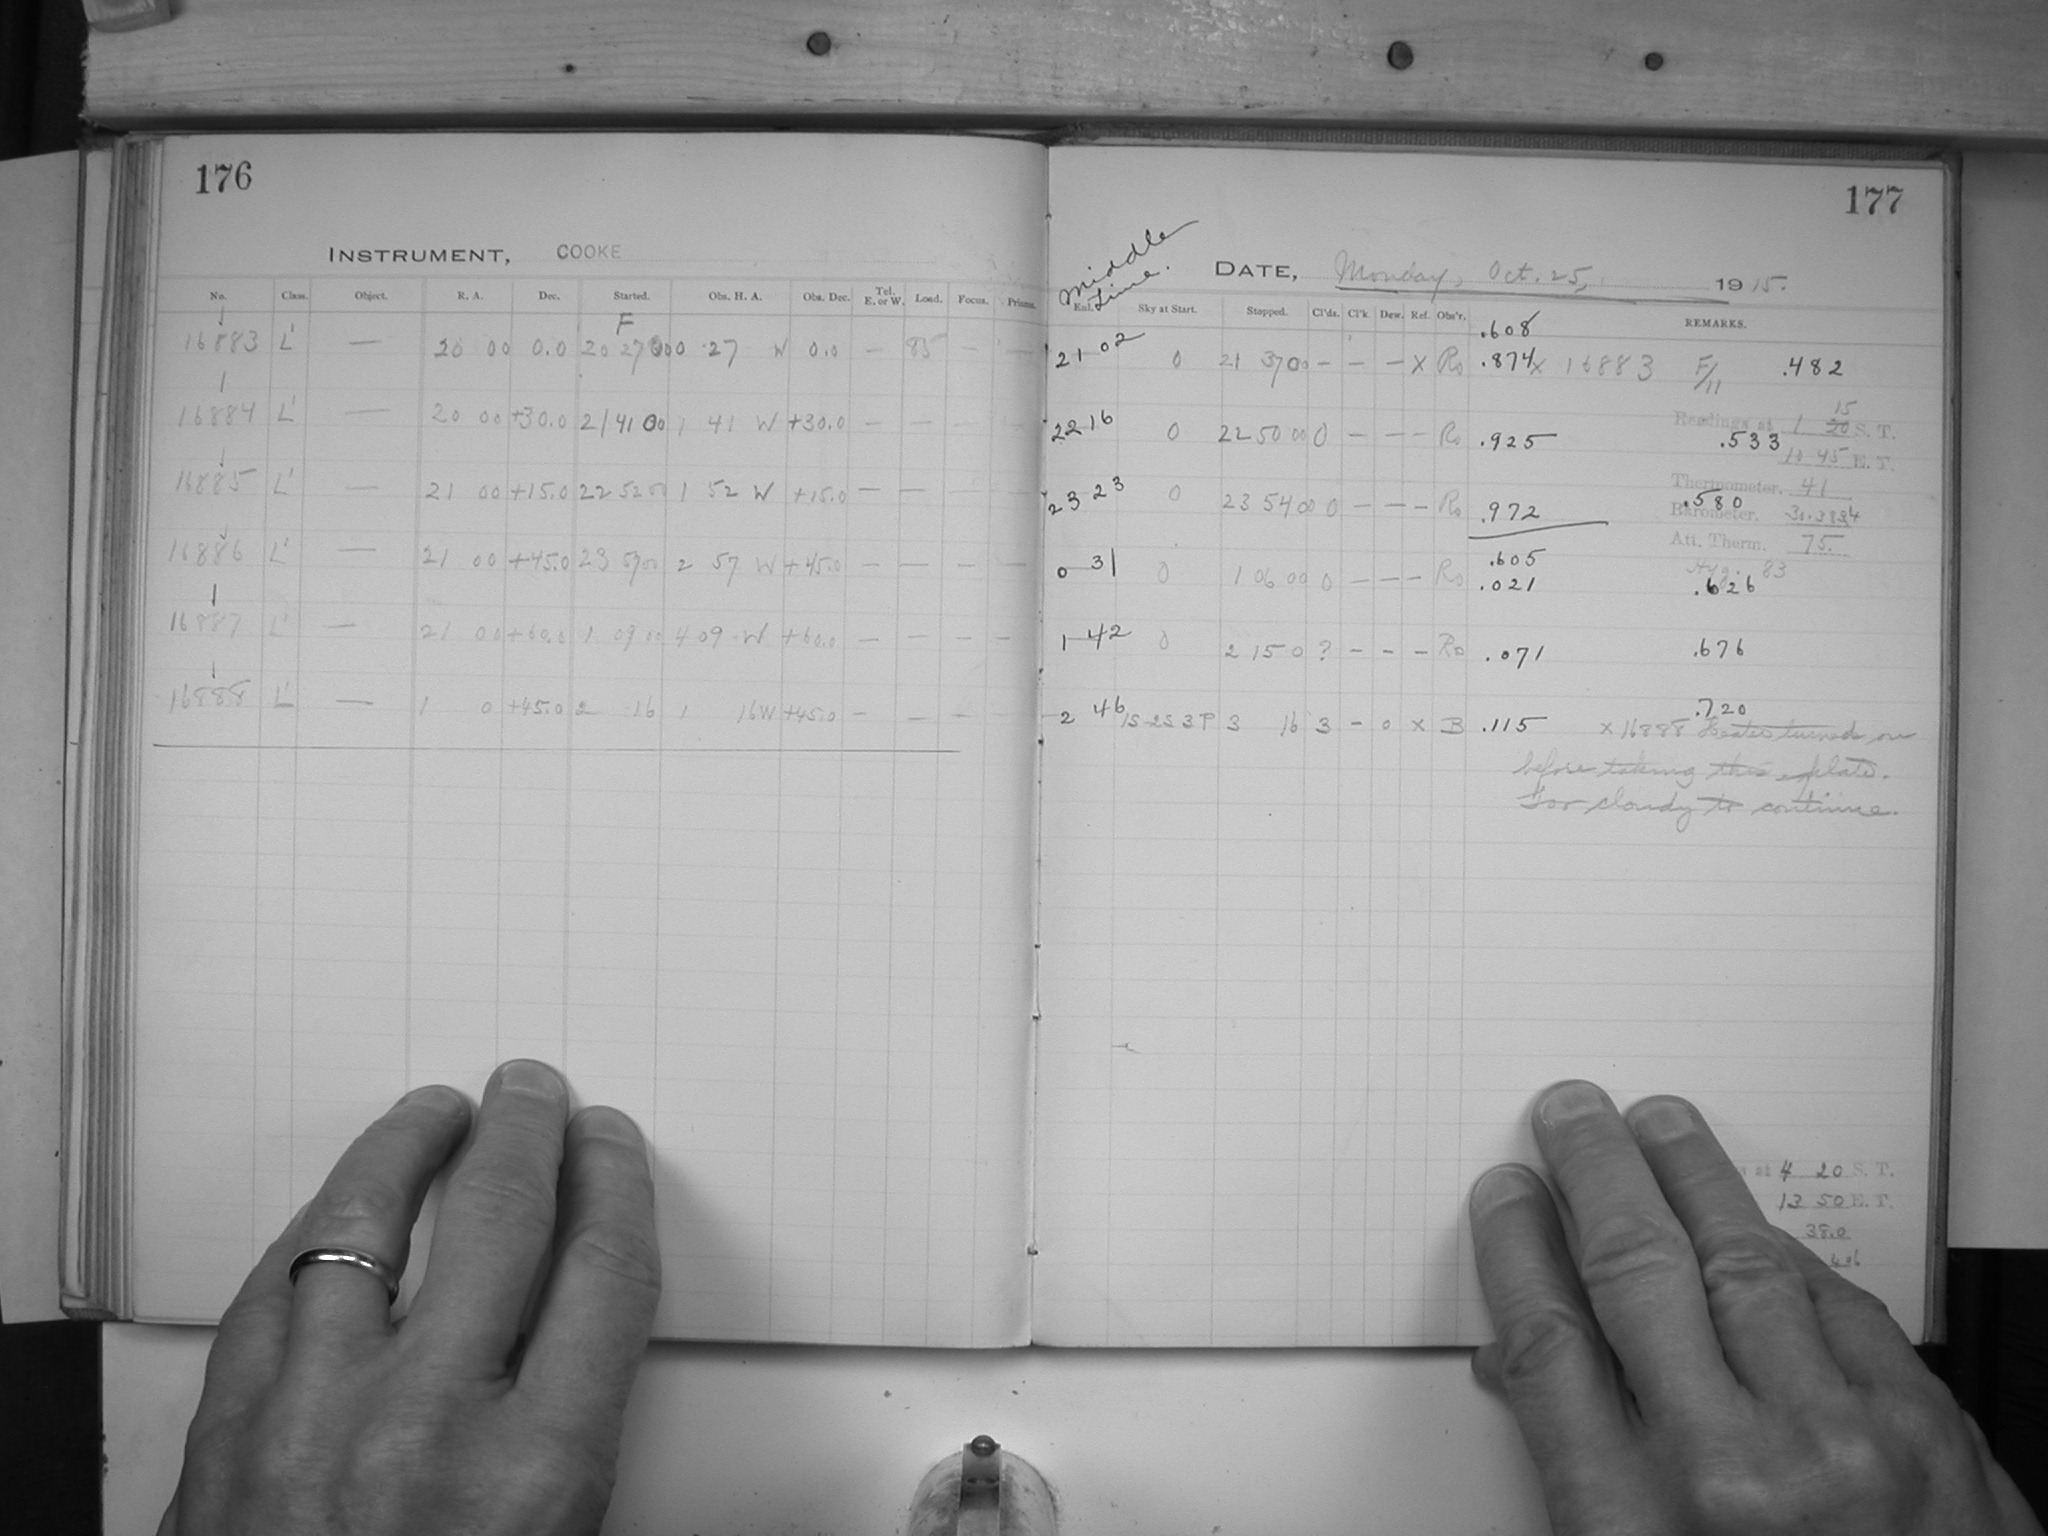 176
INSTRUMENT, COOKE
No. Class. Object. R. A. Dec. Started. Obs. H. A. Obs. Dec. Tel. E. or W. Load. Focus. Prisms.
F
16883 L' — 20 00 0.0 20 27 00 0 27 W 0.0 — 85 — —
16884 L' — 20 00 +30.0 21 41 00 1 41 W +30.0 — — — —
16885 L' — 21 00 +15.0 22 52 00 1 52 W +15.0 — — — —
16886 L' — 21 00 +45.0 23 57 00 2 57 W +45.0 — — — —
16887 L' — 21 00 +60.0 1 09 00 4 09 W +60.0 — — — —
16888 L' — 1 0 +45.0 2 16 1 16 W +45.0 — — — —
177
Middle Time.
DATE, Monday, Oct. 25, 1915.
Enl. Sky at Start. Stopped. Cl'ds. Cl'k. Dew. Ref. Obs'r. REMARKS.
.608
21 02 0 21 37 00 — — — X Ro .874 x 16883 F/11 .482
22 16 0 22 50 00 0 — — — Ro .925 .533
23 23 0 23 54 00 0 — — — Ro .972 .580
.605
0 31 0 1 06 00 0 — — — Ro .021 .626
1 42 0 2 15 0 ? — — — Ro .071 .676
2 46 1S-2S 3P 3 16 3 — 0 X B .115 .720
x 16888 Heater turned on
before taking this plate.
Too cloudy to continue.
15
Readings at 1 20 S. T.
10 45 E. T.
Thermometer. 41
Barometer.
Att. Therm. 75.
Hyg. 83
at 4 20 S. T.
13 50 E. T.
38.0
406